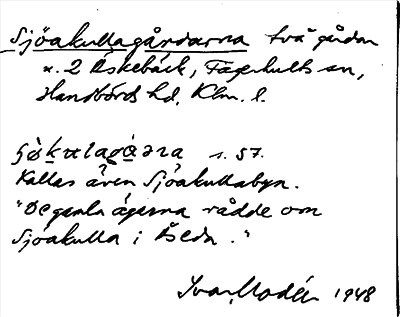 Sjöakullagårdarna två gårdar
n. 2 Äskebäck, Fagerhults sn,
Handbörds hd, Klm. l.
s. 57.
Kallas även Sjöakullabyn.
"De gamla ägarna rådde om
Sjöakulla i Åseda."
Ivar Modéer 1948